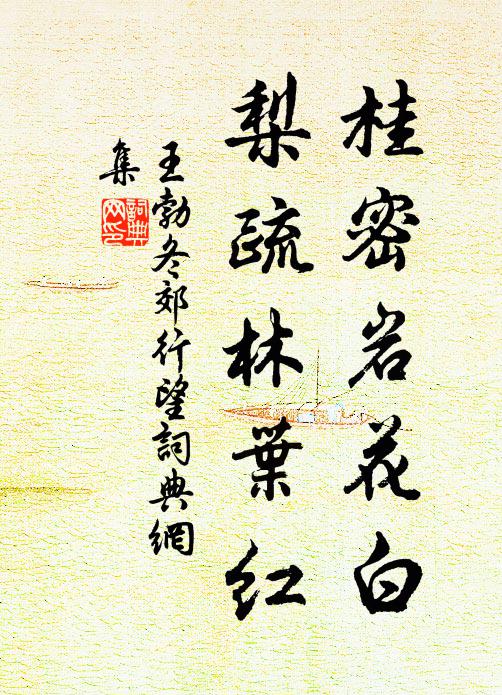 桂密岩花白
梨疏林葉红
王勃冬郊行望詞典網
集
詞典
网印